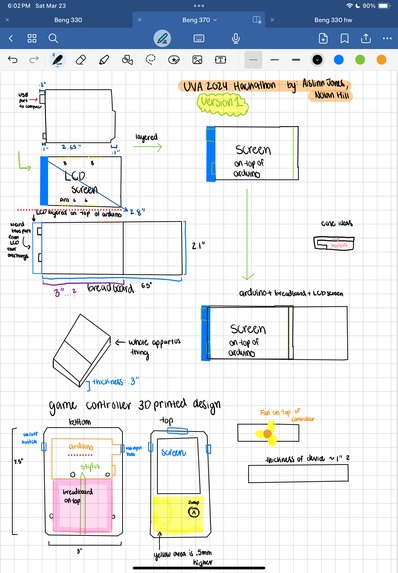 6:02 PM Sat Mar 23
90%
Beng 330
Beng 370
Beng 330 hw
UVA 2024 Hackathon by Aislinn Jones,
Nolan Hill
version 1
USB
layered
2.65"
Screen
on top of
arduino
LCD
screen
LCD layered on top of arduino
2.8"
case ideas
2.1"
3"...?
breadboard
6.5"
arduino + breadboard + LCD screen
Screen
on top of
arduino
whole appartus
thing
thickness: 3"
game controller 3D printed design
Fan on top of
controller
bottom
top
on/off
switch
arduino
stylus
screen
thickness of device ~ 1" ?
7.5"
breadboard
on top
Jump
A
3"
yellow area is .5mm
higher